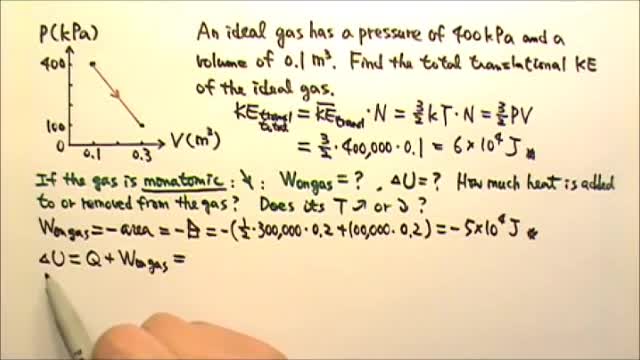 P(kPa)
400
100
0
0.1
0.3
V(m³)
An ideal gas has a pressure of 400kPa and a
volume of 0.1 m³. Find the total translational KE
of the ideal gas.
KE transl total = K̅E̅ transl · N = 3/2 kT · N = 3/2 PV
= 3/2 · 400,000 · 0.1 = 6×10⁴ J
If the gas is monatomic: ↘ : Won gas = ? , ΔU = ? How much heat is added
to or removed from the gas? Does its T ↗ or ↘ ?
Won gas = − area = − = −(1/2 · 300,000 · 0.2 + 100,000 · 0.2) = − 5×10⁴ J
ΔU = Q + Won gas =